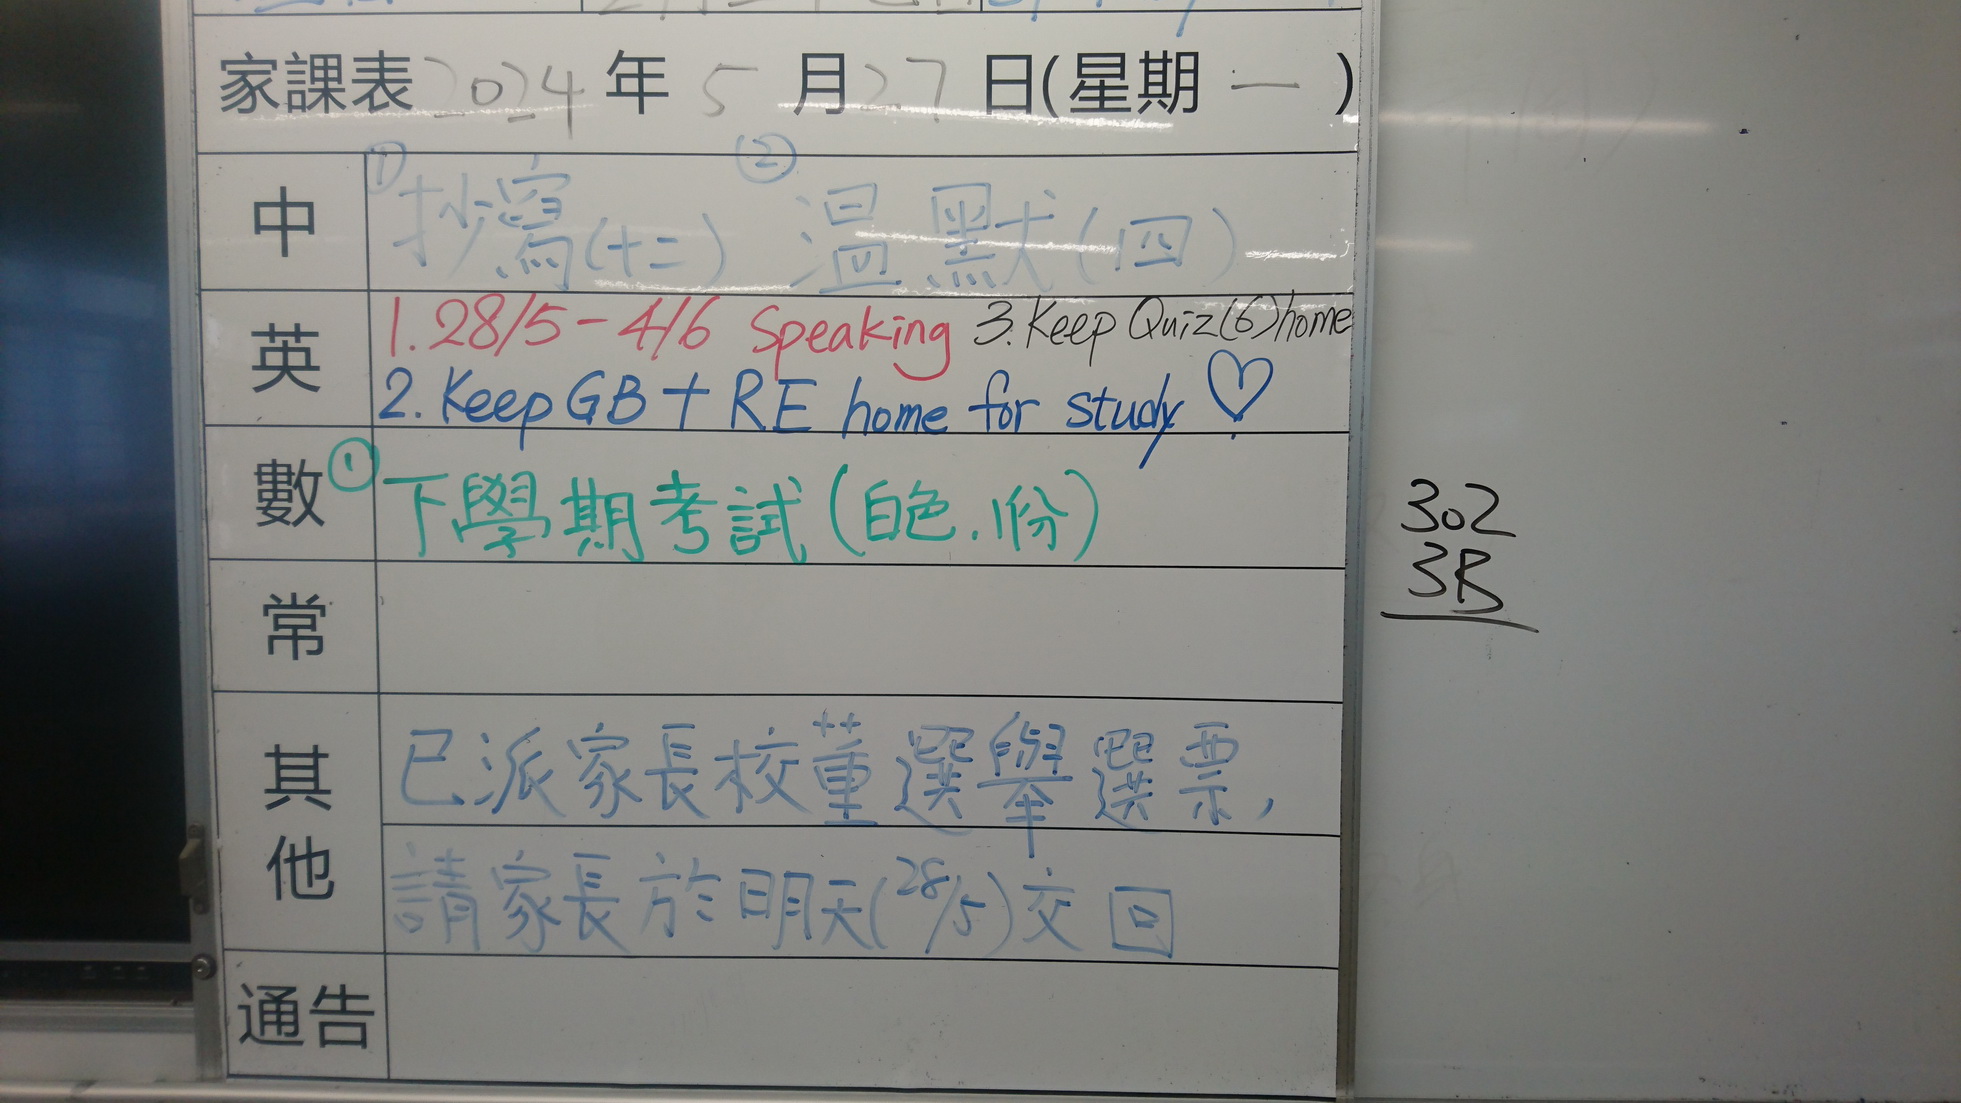 家課表 2024 年 5 月 27 日(星期 一 )
中 ① 抄寫(十二) ② 温默(四)
英 1. 28/5 - 4/6 Speaking 3. Keep Quiz(6) home
2. Keep GB + RE home for study ♡
數 ① 下學期考試(白色.1份)
常
其他 已派家長校董選舉選票,
請家長於明天(28/5)交回
通告
302
3B